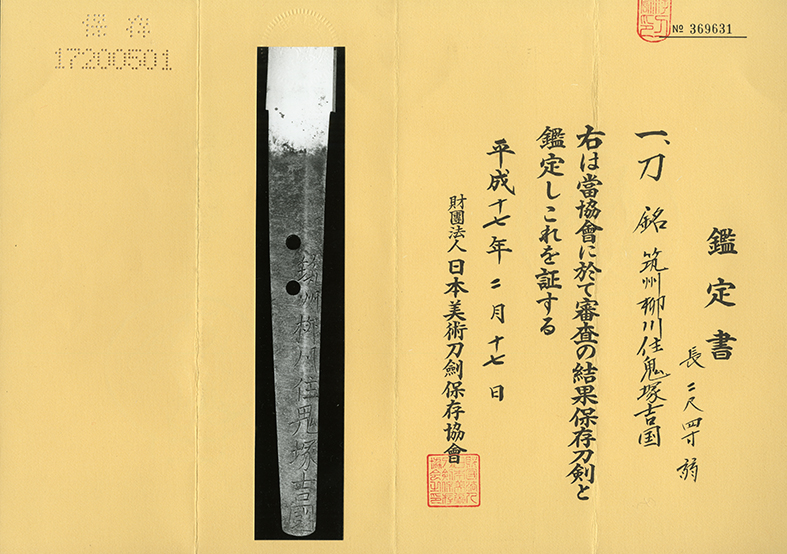 保存
17200501
№ 369631
鑑定書
一、刀 銘 筑州柳川住鬼塚吉国
長 二尺四寸 弱
右は當協會に於て審査の結果保存刀剣と
鑑定しこれを証する
平成十七年二月十七日
財團法人 日本美術刀劍保存協會
筑州柳川住鬼塚吉國